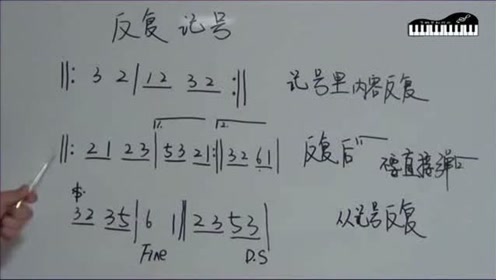 反复记号
‖: 3 2 | 1 2 3 2 :‖ 记号里内容反复
‖: 2 1 2 3 | 1. 5 3 2 1 :‖ 2. 3 2 6 1 | 反复后 直接弹
3 2 3 5 | 6 1 ‖ 2 3 5 3 | 从记号反复
Fine D.S